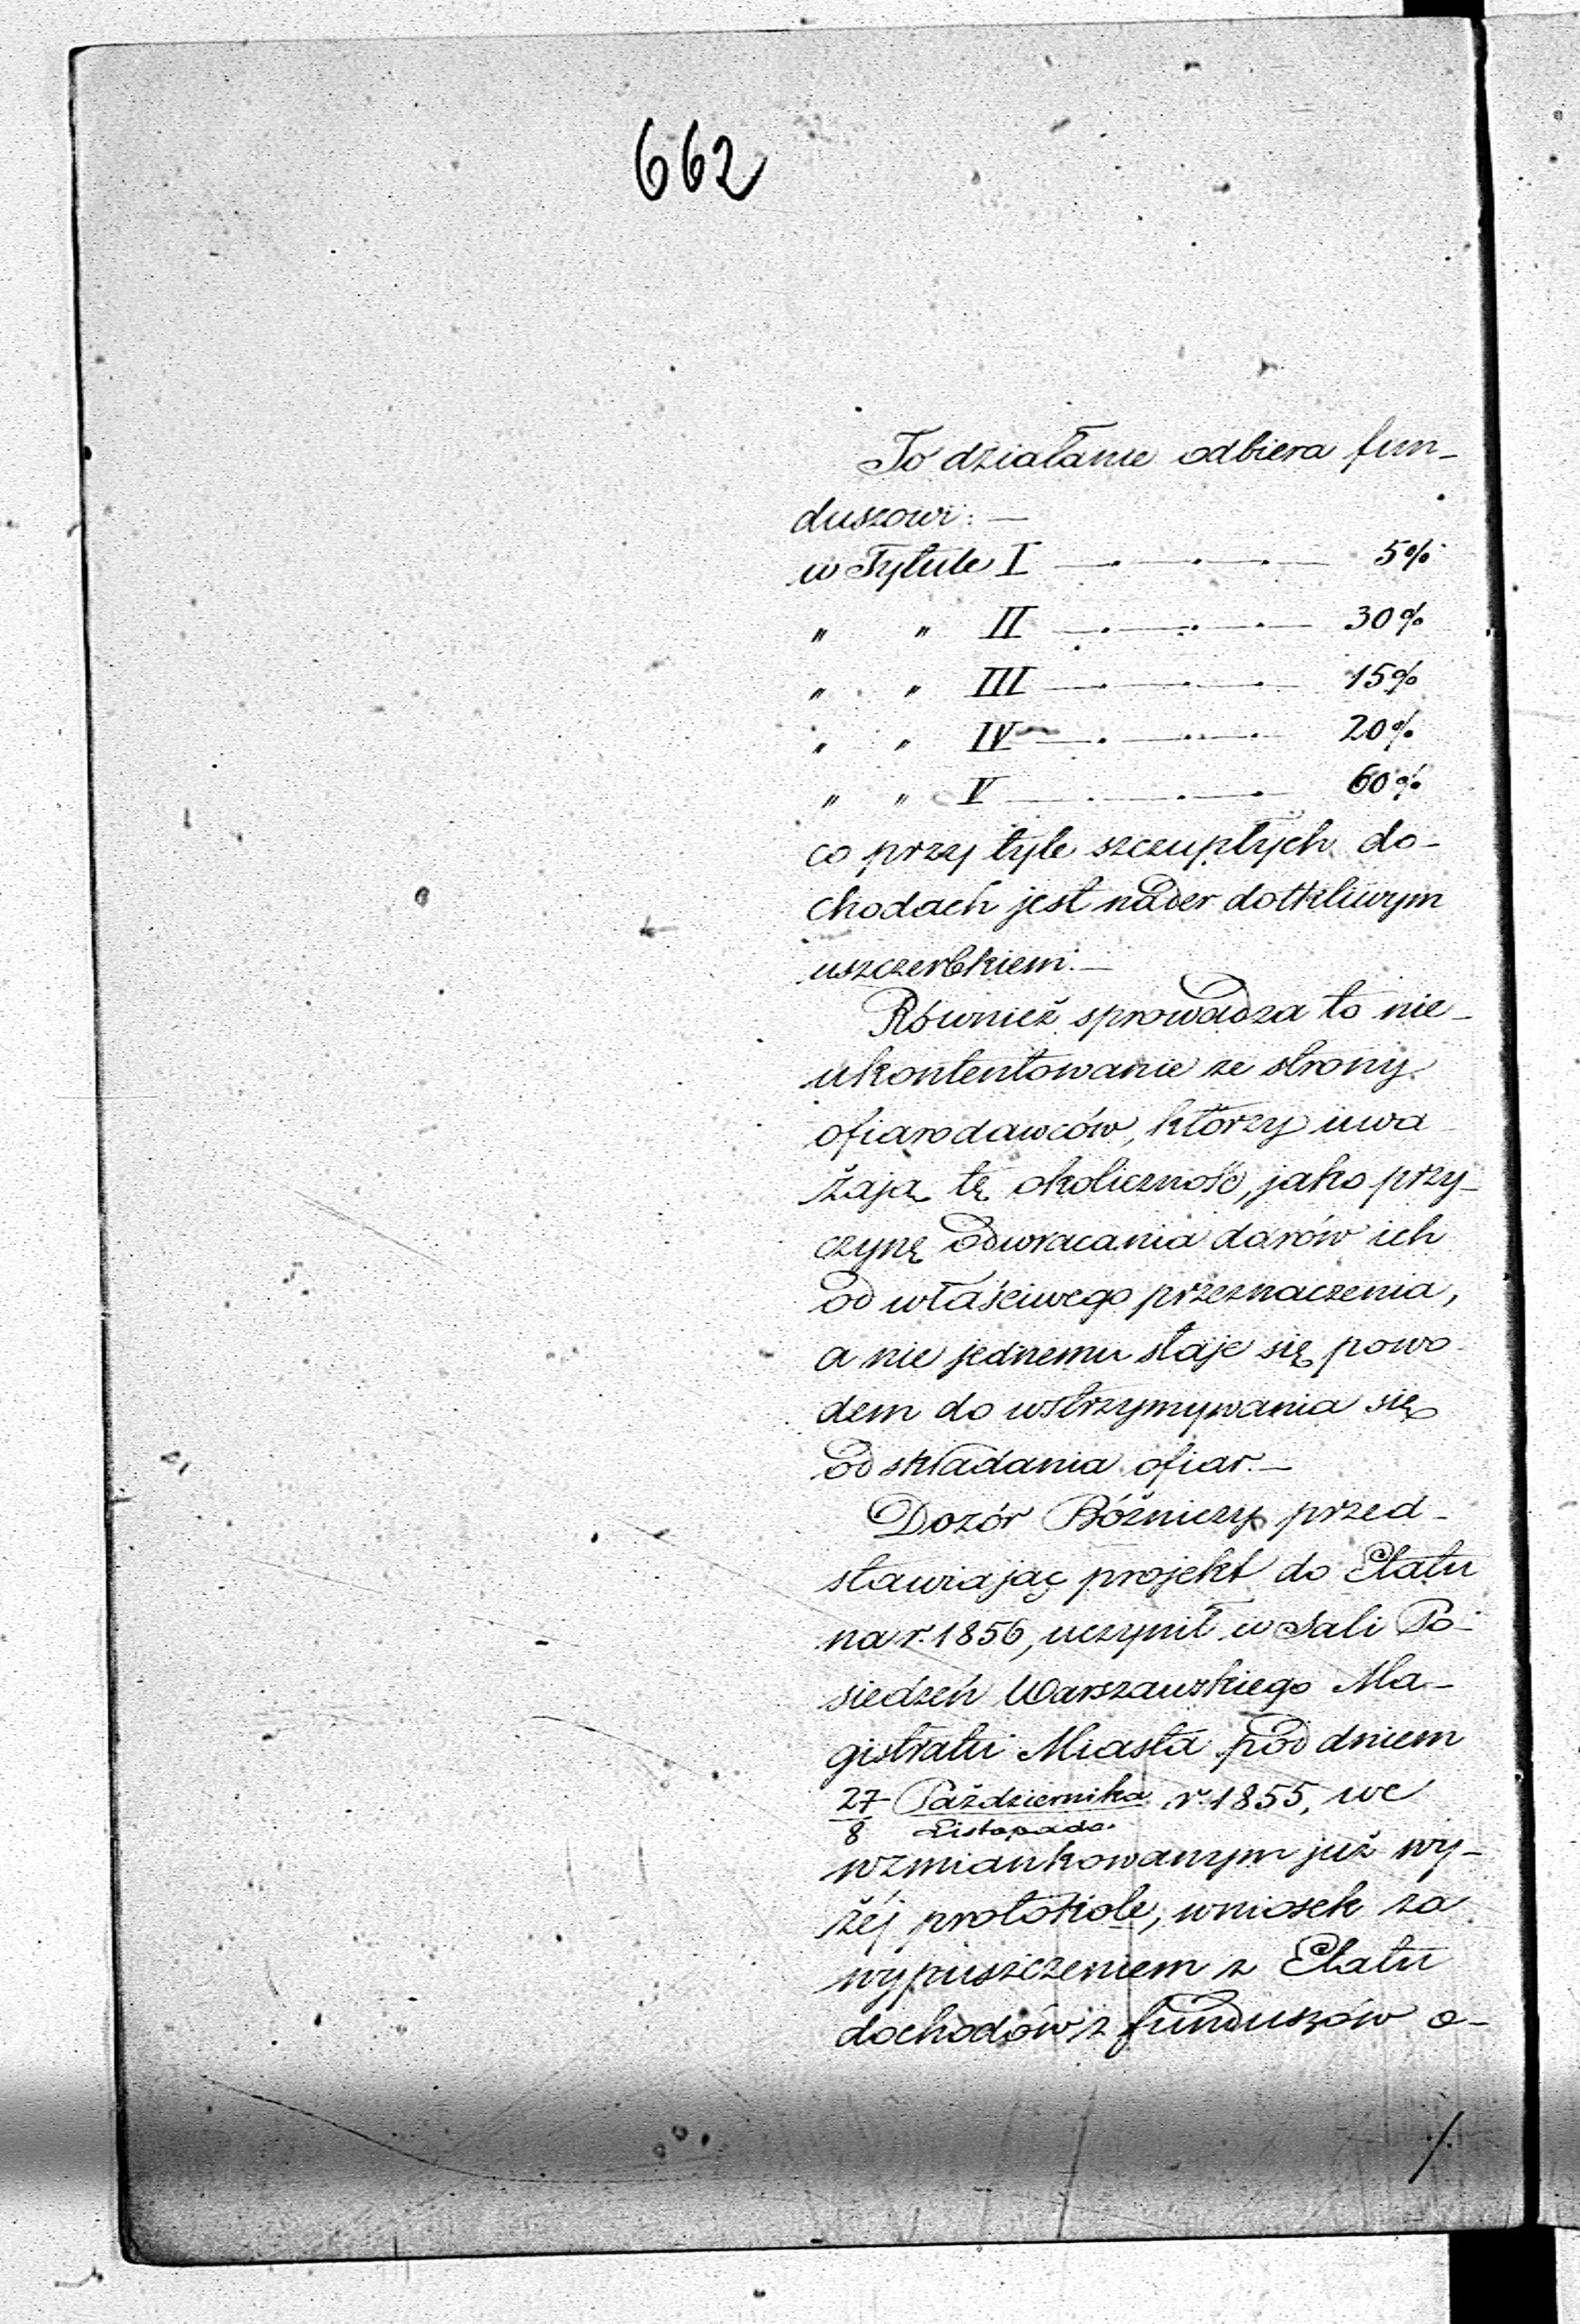 662
To działanie odbiera fun-
duszowi: —
w Tytule I —.—.—.— 5%
" " II —.—.—.— 30%
" " III —.—.—.— 15%
" " IV —.—.—.— 20%
" " V —.—.—.— 60%
co przy tyle szczupłych do-
chodach jest nader dotkliwym
uszczerbkiem. —
Również sprowadza to nie-
ukontentowanie ze strony
ofiarodawców, którzy uwa
żają tę okoliczność, jako przy-
czynę odwracania darów ich
od właściwego przeznaczenia,
a nie jednemu staje się powo-
dem do wstrzymywania się
od składania ofiar. —
Dozór Bóżniczy przed-
stawiając projekt do Etatu
na r. 1856, uczynił w Sali Po-
siedzeń Warszawskiego Ma-
gistratu Miasta pod dniem
27 Października r. 1855, we
8 Listopada
wzmiankowanym już wy-
żéj protokole, wniosek za
wypuszczeniem z Etatu
dochodów z funduszów o-
./.